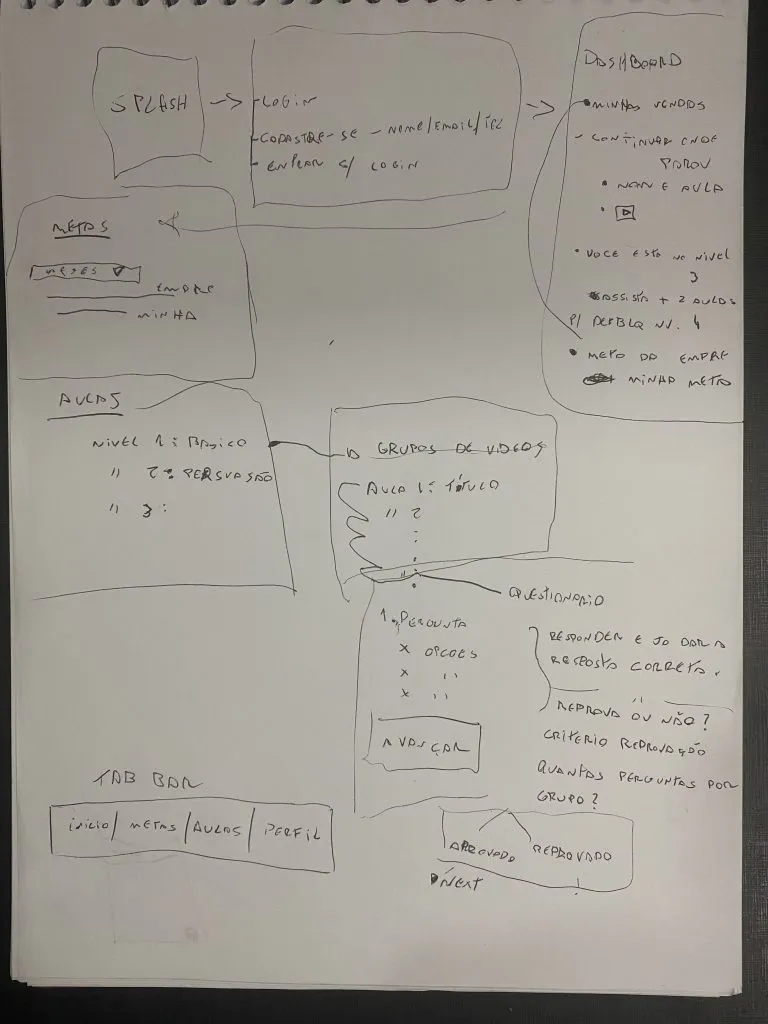 SPLASH
- LOGIN
- CADASTRE-SE - NOME/EMAIL/TEL
- ENTRAR C/ LOGIN
DASHBOARD
• MINHAS VENDAS
- CONTINUAR ONDE
PAROU
• NOME AULA
• VOCE ESTA NO NIVEL
3
ASSISTA + 2 AULAS
P/ DESBLQ NV. 4
• META DA EMPRE
MINHA META
METAS
MESES
EMPRE
MINHA
AULAS
NIVEL 1: BASICO
" 2: PERSUASÃO
" 3:
GRUPOS DE VIDEOS
AULA 1: TÍTULO
" 2
"
QUESTIONARIO
1. PERGUNTA
X OPCOES
X "
X "
AVANÇAR
RESPONDER E JA DAR A
RESPOSTA CORRETA.
"
REPROVA OU NÃO?
CRITERIO REPROVAÇÃO
QUANTAS PERGUNTAS POR
GRUPO?
APROVADO
REPROVADO
NEXT
TAB BAR
inicio/ METAS /AULAS / PERFIL